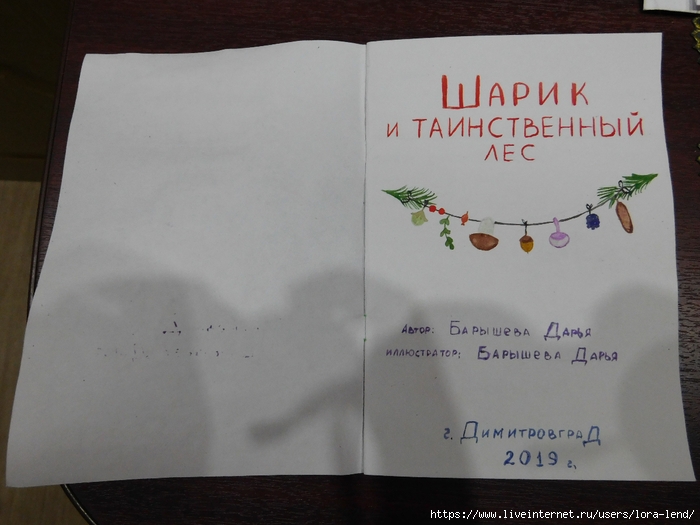 ШАРИК
И ТАИНСТВЕННЫЙ
ЛЕС
АВТОР: БАРЫШЕВА ДАРЬЯ
ИЛЛЮСТРАТОР: БАРЫШЕВА ДАРЬЯ
г. ДИМИТРОВГРАД
2019 г.
https://www.liveinternet.ru/users/lora-lend/